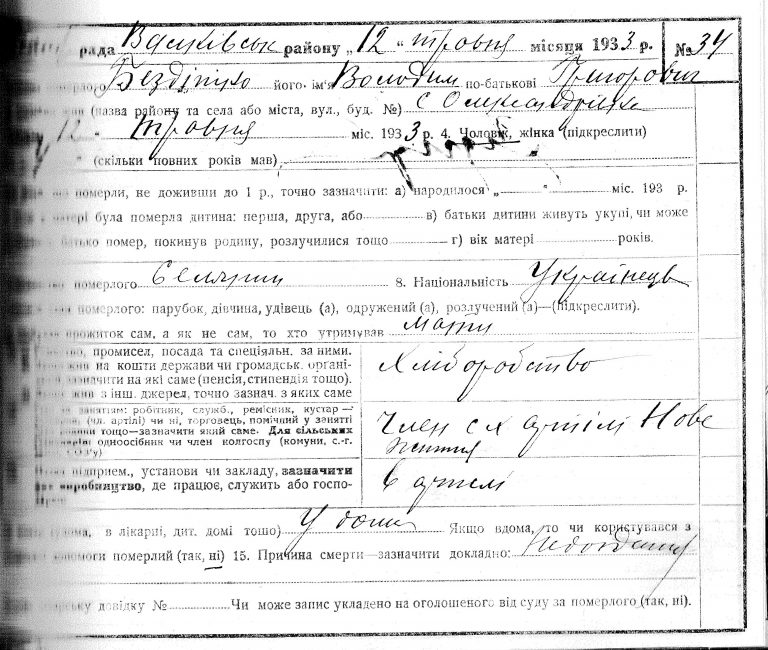 рада Васиківськ району „12“ травня місяця 1933 р. №34
Бездітко його ім'я Володим по-батькові Григорович
(назва району та села або міста, вул., буд. №) с Олександрівка
12 травня міс. 1933 р. 4. Чоловік, жінка (підкреслити)
(скільки повних років мав)
померли, не доживши до 1 р., точно зазначити: а) народилося „ “ міс. 193 р.
була померла дитина: перша, друга, або в) батьки дитини живуть укупі, чи може
помер, покинув родину, розлучилися тощо г) вік матері років.
померлого Селянин 8. Національність Українець
померлого: парубок, дівчина, удівець (а), одружений (а), розлучений (а)—(підкреслити).
прожиток сам, а як не сам, то хто утримував мати
промисел, посада та спеціяльн. за ними.
на кошти держави чи громадськ. органі-
зазначити на які саме (пенсія, стипендія тощо).
з інш. джерел, точно зазнач. з яких саме
Хліборобство
занятим: робітник, служб., ремісник, кустар—
(чл. артілі) чи ні, торговець, помічний у занятті
тощо—зазначити який саме. Для сільських
одноосібник чи член колгоспу (комуни, с.-г.
член с х артілі Нове
Життя
підприєм., установи чи закладу, зазначити
виробництво, де працює, служить або госпо-
в артілі
в лікарні, дит. домі тощо) У дома Якщо вдома, то чи користувався з
померлий (так, ні) 15. Причина смерти—зазначити докладно: Недоїдання
довідку № Чи може запис укладено на оголошеного від суду за померлого (так, ні).